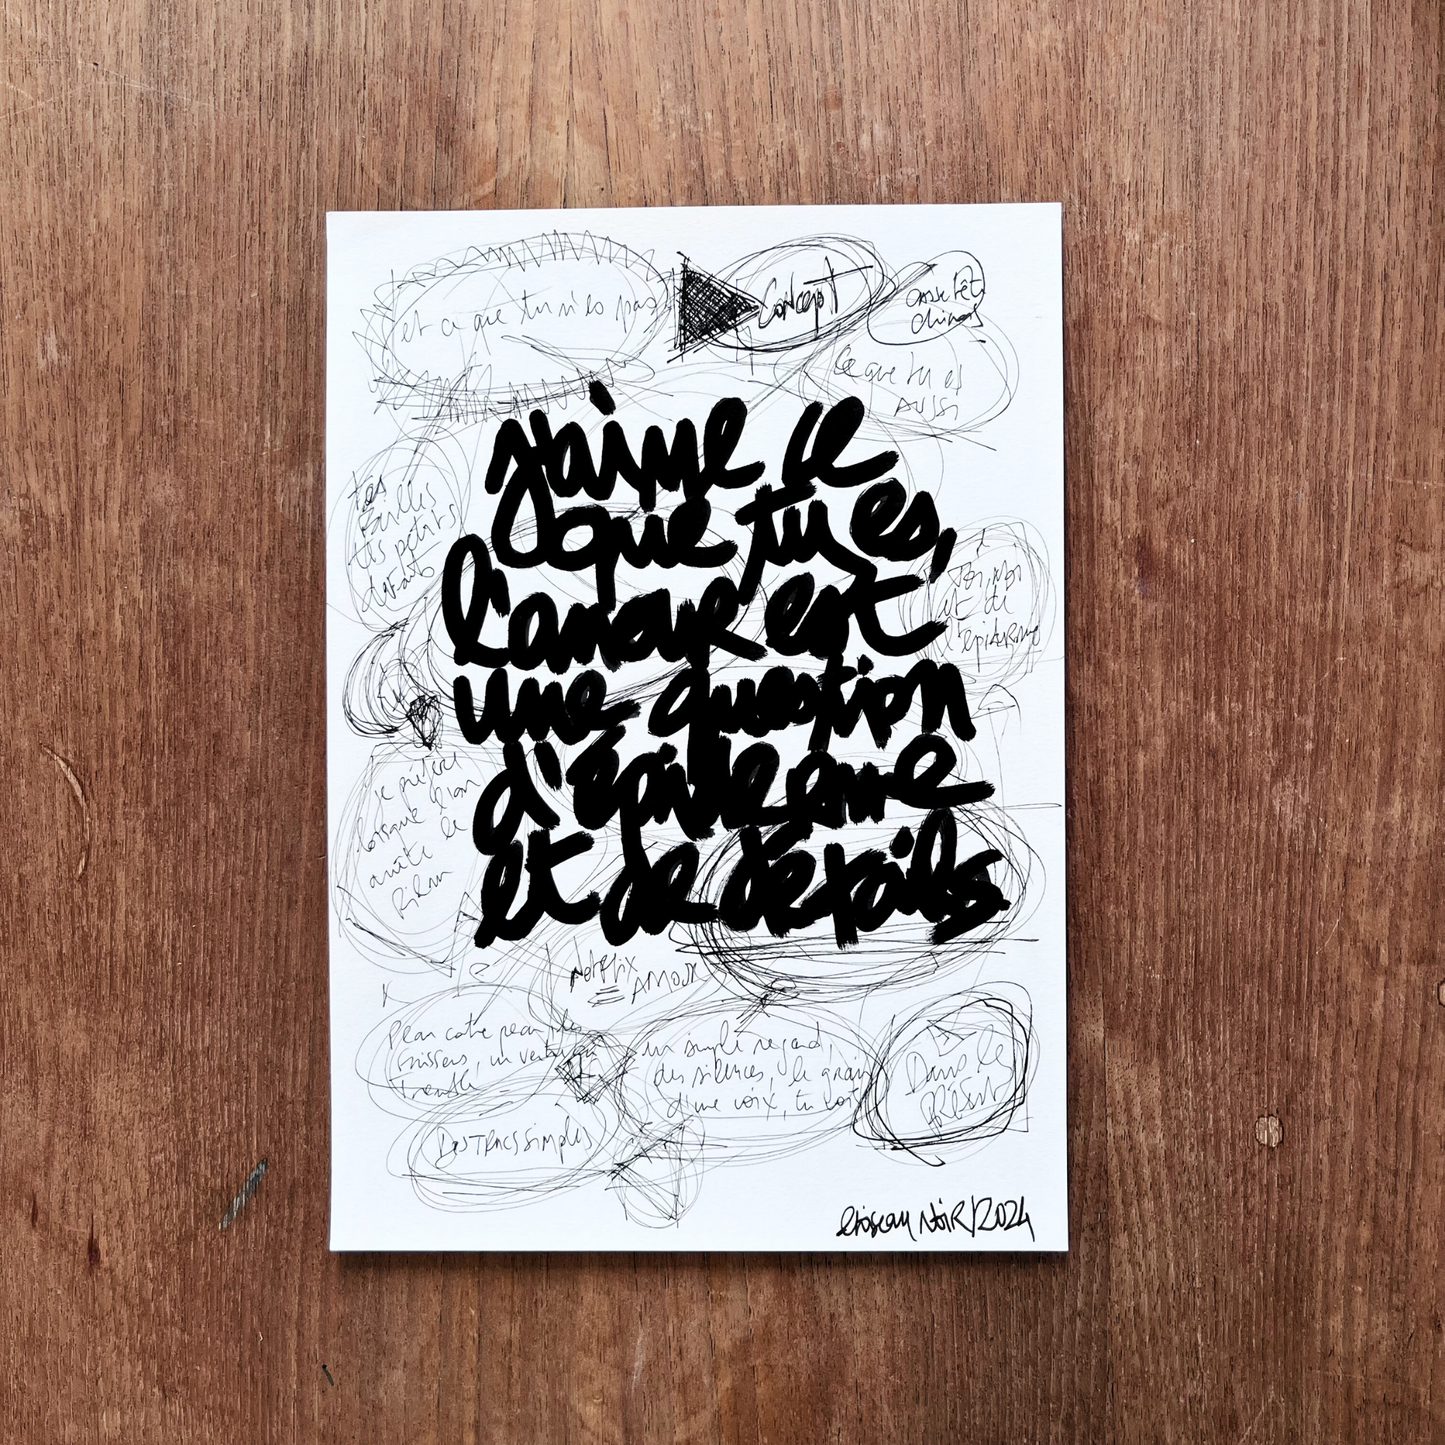 et ce que tu n'es pas
Concept
casse tête
chinois
ce que tu es
AUSSI
j'aime ce
que tu es,
l'amour est
une question
d'épiderme
et de détails
tes
tes petits
défauts
Toi, moi
et de
l'épiderme
je préfère
lorsque l'on
arrête le
film
Netflix
AMOUR
Peau contre peau, les
un
Tremble
un simple regard,
des silences, le grain
d'une voix, tu vois
Dans le
présent
Des TRUCS simples
loiseau NOIR/2024